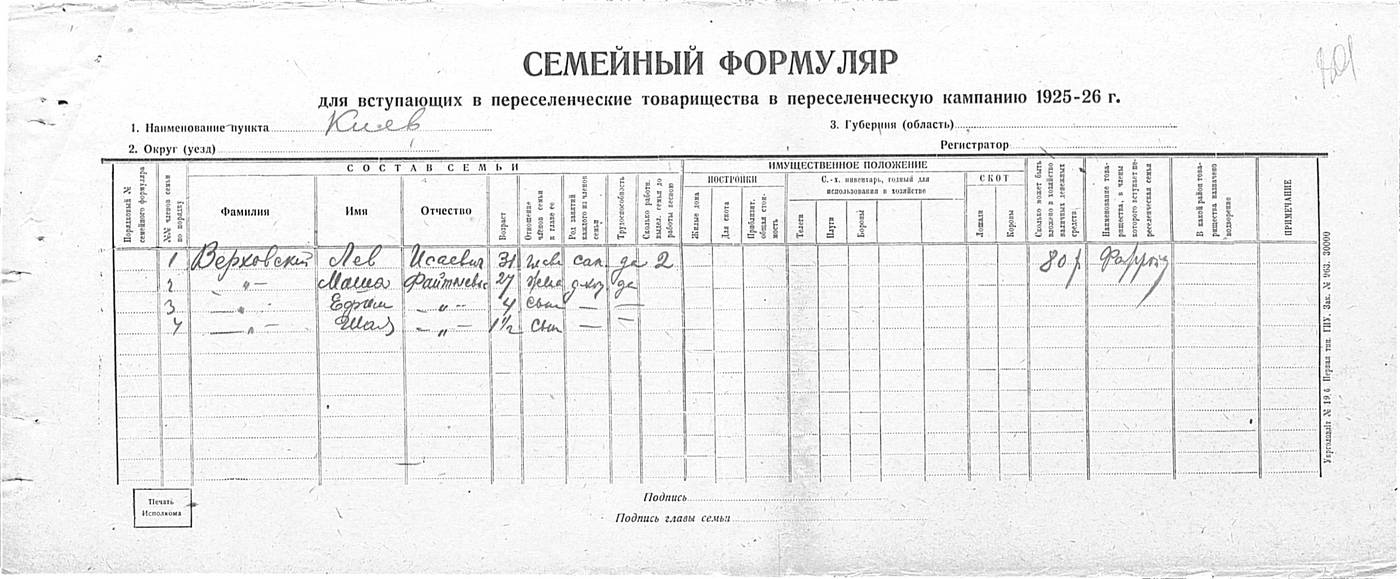 СЕМЕЙНЫЙ ФОРМУЛЯР
для вступающих в переселенческие товарищества в переселенческую кампанию 1925-26 г.
1. Наименование пункта Киев
3. Губерния (область)
2. Округ (уезд)
Регистратор
Порядковый № семейного формуляра
№№ членов семьи по порядку
СОСТАВ СЕМЬИ
Фамилия
Имя
Отчество
Возраст
Отношение членов семьи к главе ее
Род занятий каждого из членов семьи
Трудоспособность
Сколько работн. выдел. семья до работы весною
ИМУЩЕСТВЕННОЕ ПОЛОЖЕНИЕ
ПОСТРОЙКИ
Жилые дома
Для скота
Приблизит. общая стоимость
С.-х. инвентарь, годный для использования в хозяйстве
Телеги
Плуги
Бороны
СКОТ
Лошади
Коровы
Сколько может быть вложено в хозяйство наличных денежных средств.
Наименование товарищества, в члены которого вступает переселенческая семья
В какой район товарищества назначено водворение
ПРИМЕЧАНИЕ
1 Верховский Лев Исаевич 31 сап. да 2 80 р.
2 —„— Маша 27 жена да
3 —„— Ефим —„— 4 сын — —
4 —„— —„— 1½ сын — —
Печать Исполкома
Подпись
Подпись главы семьи
Первая тип. ГПУ, Зак. № 963. 30000